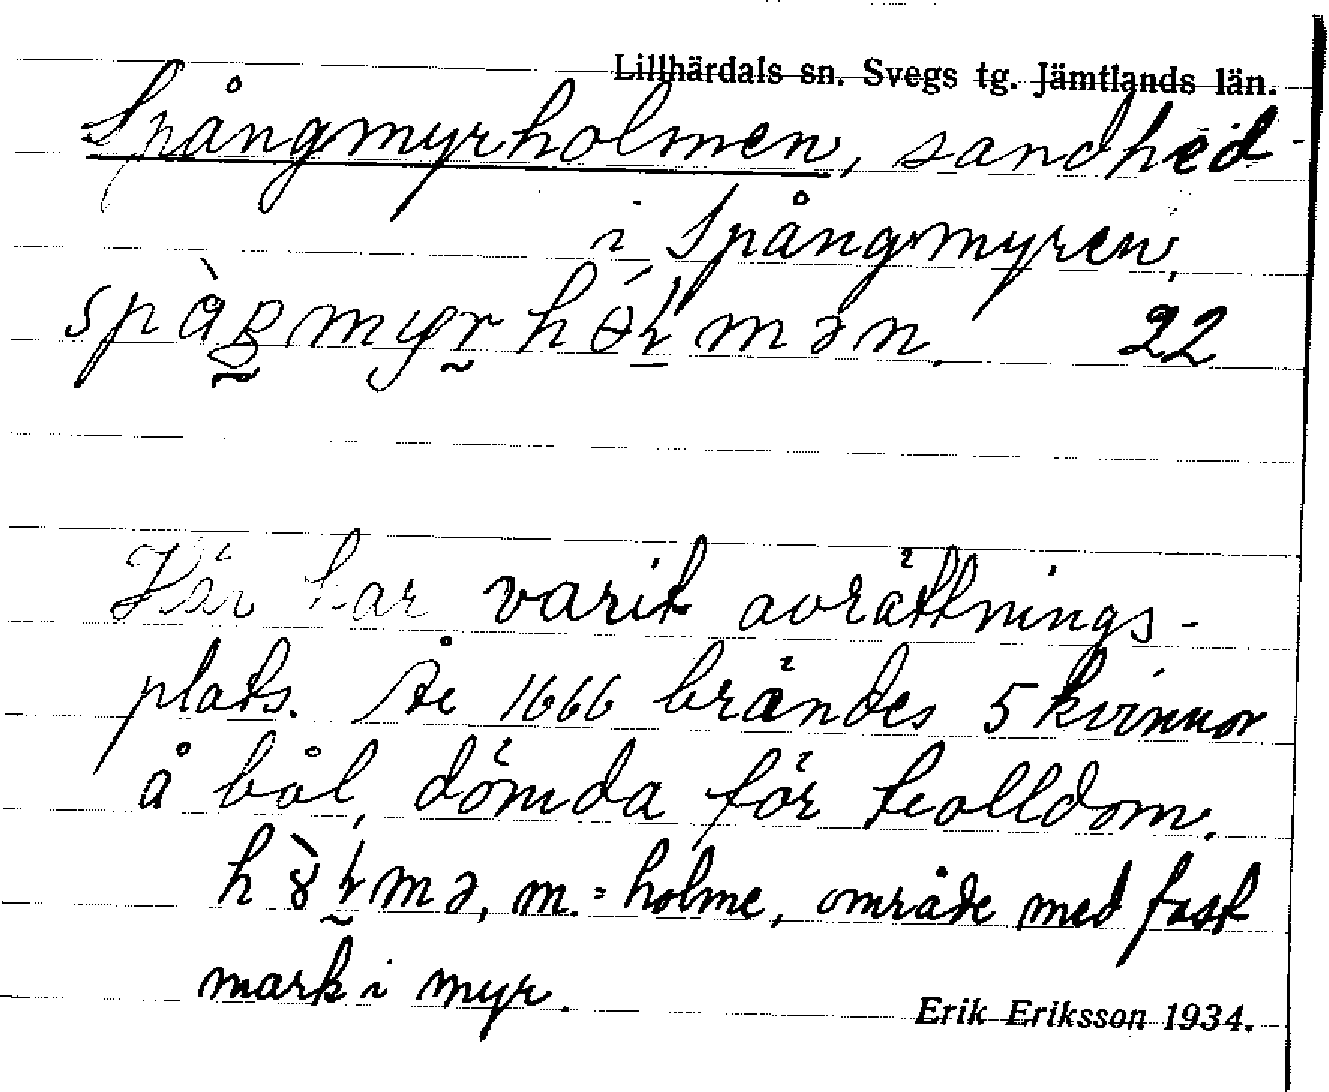 Lillhärdals sn. Svegs tg. Jämtlands län.
Spångmyrholmen, sandhed
i Spångmyren,
22
Här har varit avrättnings-
plats. År 1666 brändes 5 kvinnor
å bål, dömda för trolldom.
m. = holme, område med fast
mark i myr.
Erik Eriksson 1934.